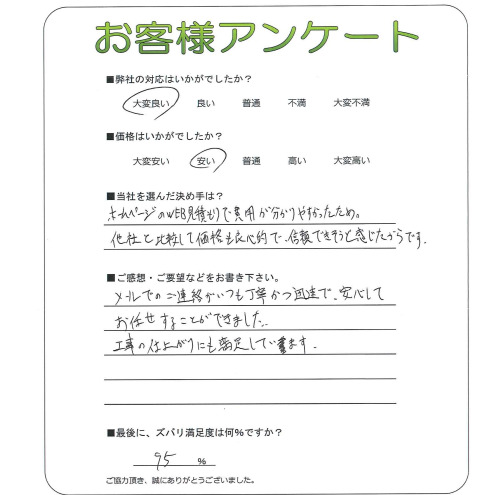 お客様アンケート
■弊社の対応はいかがでしたか?
大変良い 良い 普通 不満 大変不満
■価格はいかがでしたか?
大変安い 安い 普通 高い 大変高い
■当社を選んだ決め手は?
ホームページのWEB見積もりで費用が分かりやすかったため。
他社と比較して価格も良心的で、信頼できそうと感じたからです.
■ご感想・ご要望などをお書き下さい。
メールでのご連絡がいつも丁寧かつ迅速で、安心して
お任せすることができました.
工事の仕上がりにも満足しています.
■最後に、ズバリ満足度は何%ですか?
95 %
ご協力頂き、誠にありがとうございました。